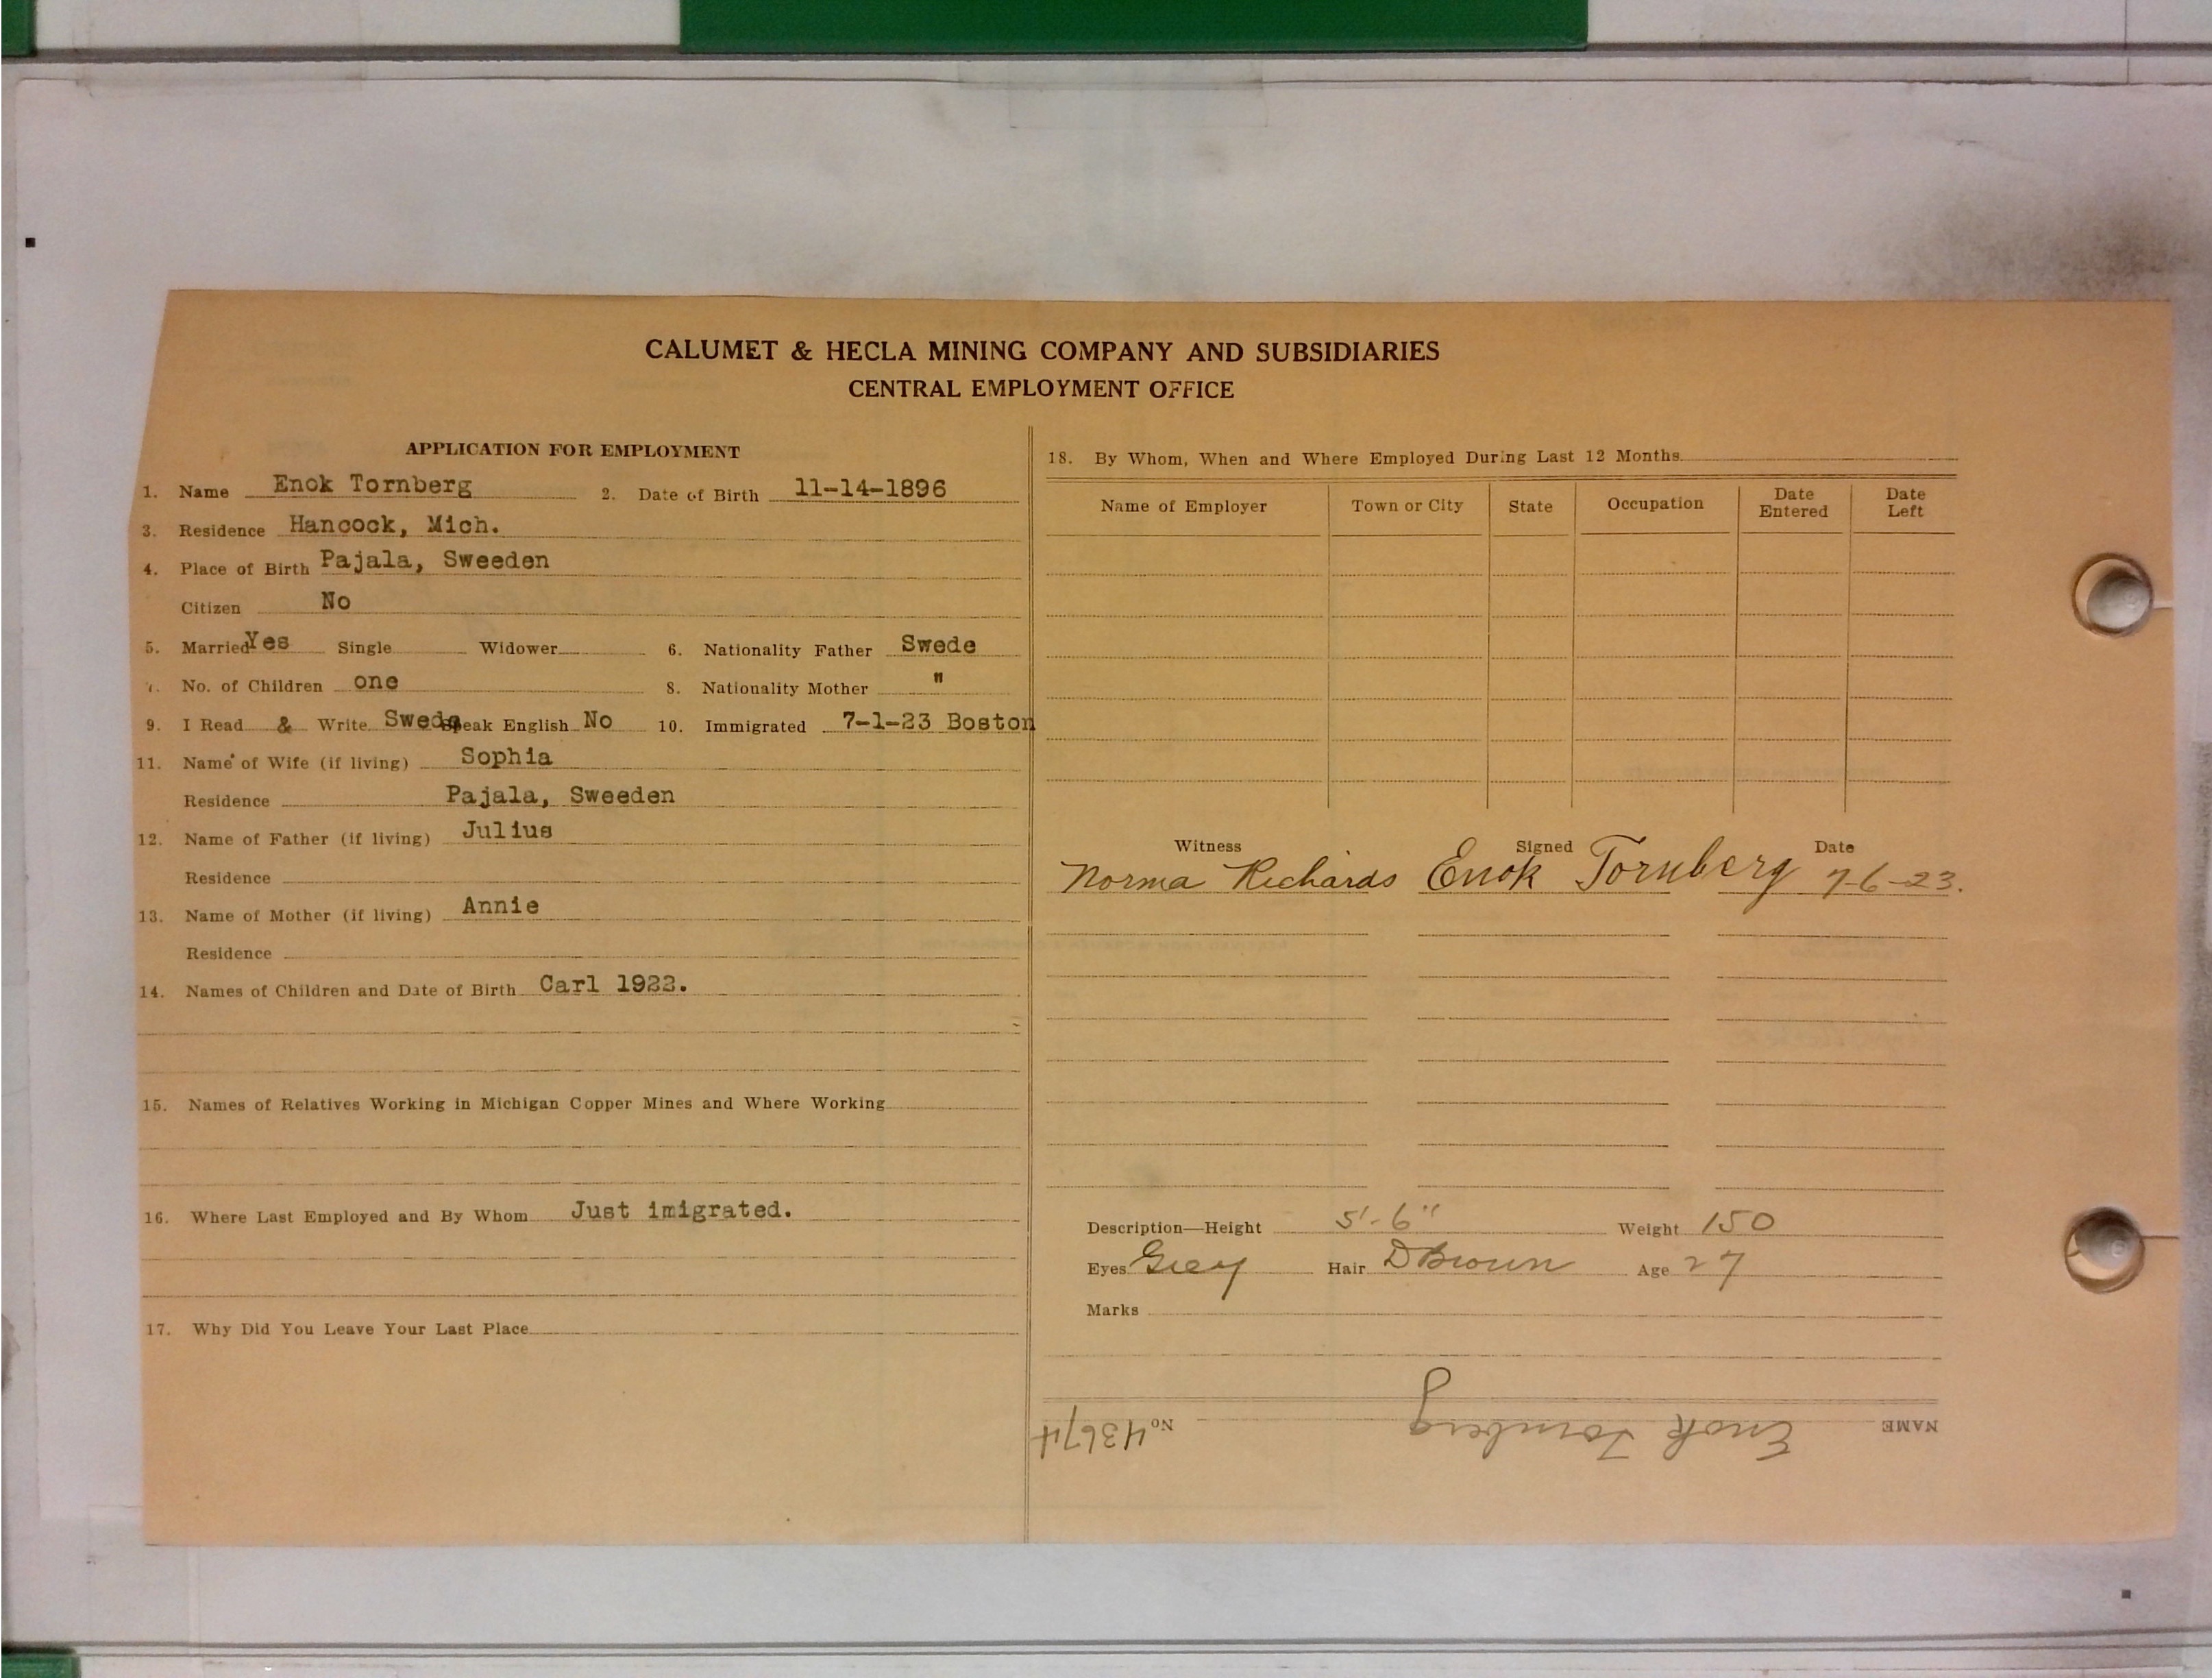 CALUMET & HECLA MINING COMPANY AND SUBSIDIARIES
CENTRAL EMPLOYMENT OFFICE
APPLICATION FOR EMPLOYMENT
1. Name Enok Tornberg 2. Date of Birth 11-14-1896
3. Residence Hancock, Mich.
4. Place of Birth Pajala, Sweeden
Citizen No
5. Married Yes Single Widower 6. Nationality Father Swede
7. No. of Children one 8. Nationality Mother "
9. I Read & Write Swede Speak English No 10. Immigrated 7-1-23 Boston
11. Name of Wife (if living) Sophia
Residence Pajala, Sweeden
12. Name of Father (if living) Julius
Residence
13. Name of Mother (if living) Annie
Residence
14. Names of Children and Date of Birth Carl 1922.
15. Names of Relatives Working in Michigan Copper Mines and Where Working
16. Where Last Employed and By Whom Just imigrated.
17. Why Did You Leave Your Last Place
18. By Whom, When and Where Employed During Last 12 Months
Name of Employer Town or City State Occupation Date Entered Date Left
Witness Signed Date
Norma Richards Enok Tornberg 7-6-23.
Description—Height 5'-6" Weight 150
Eyes Grey Hair D Brown Age 27
Marks
NAME Enok Tornberg No 43674